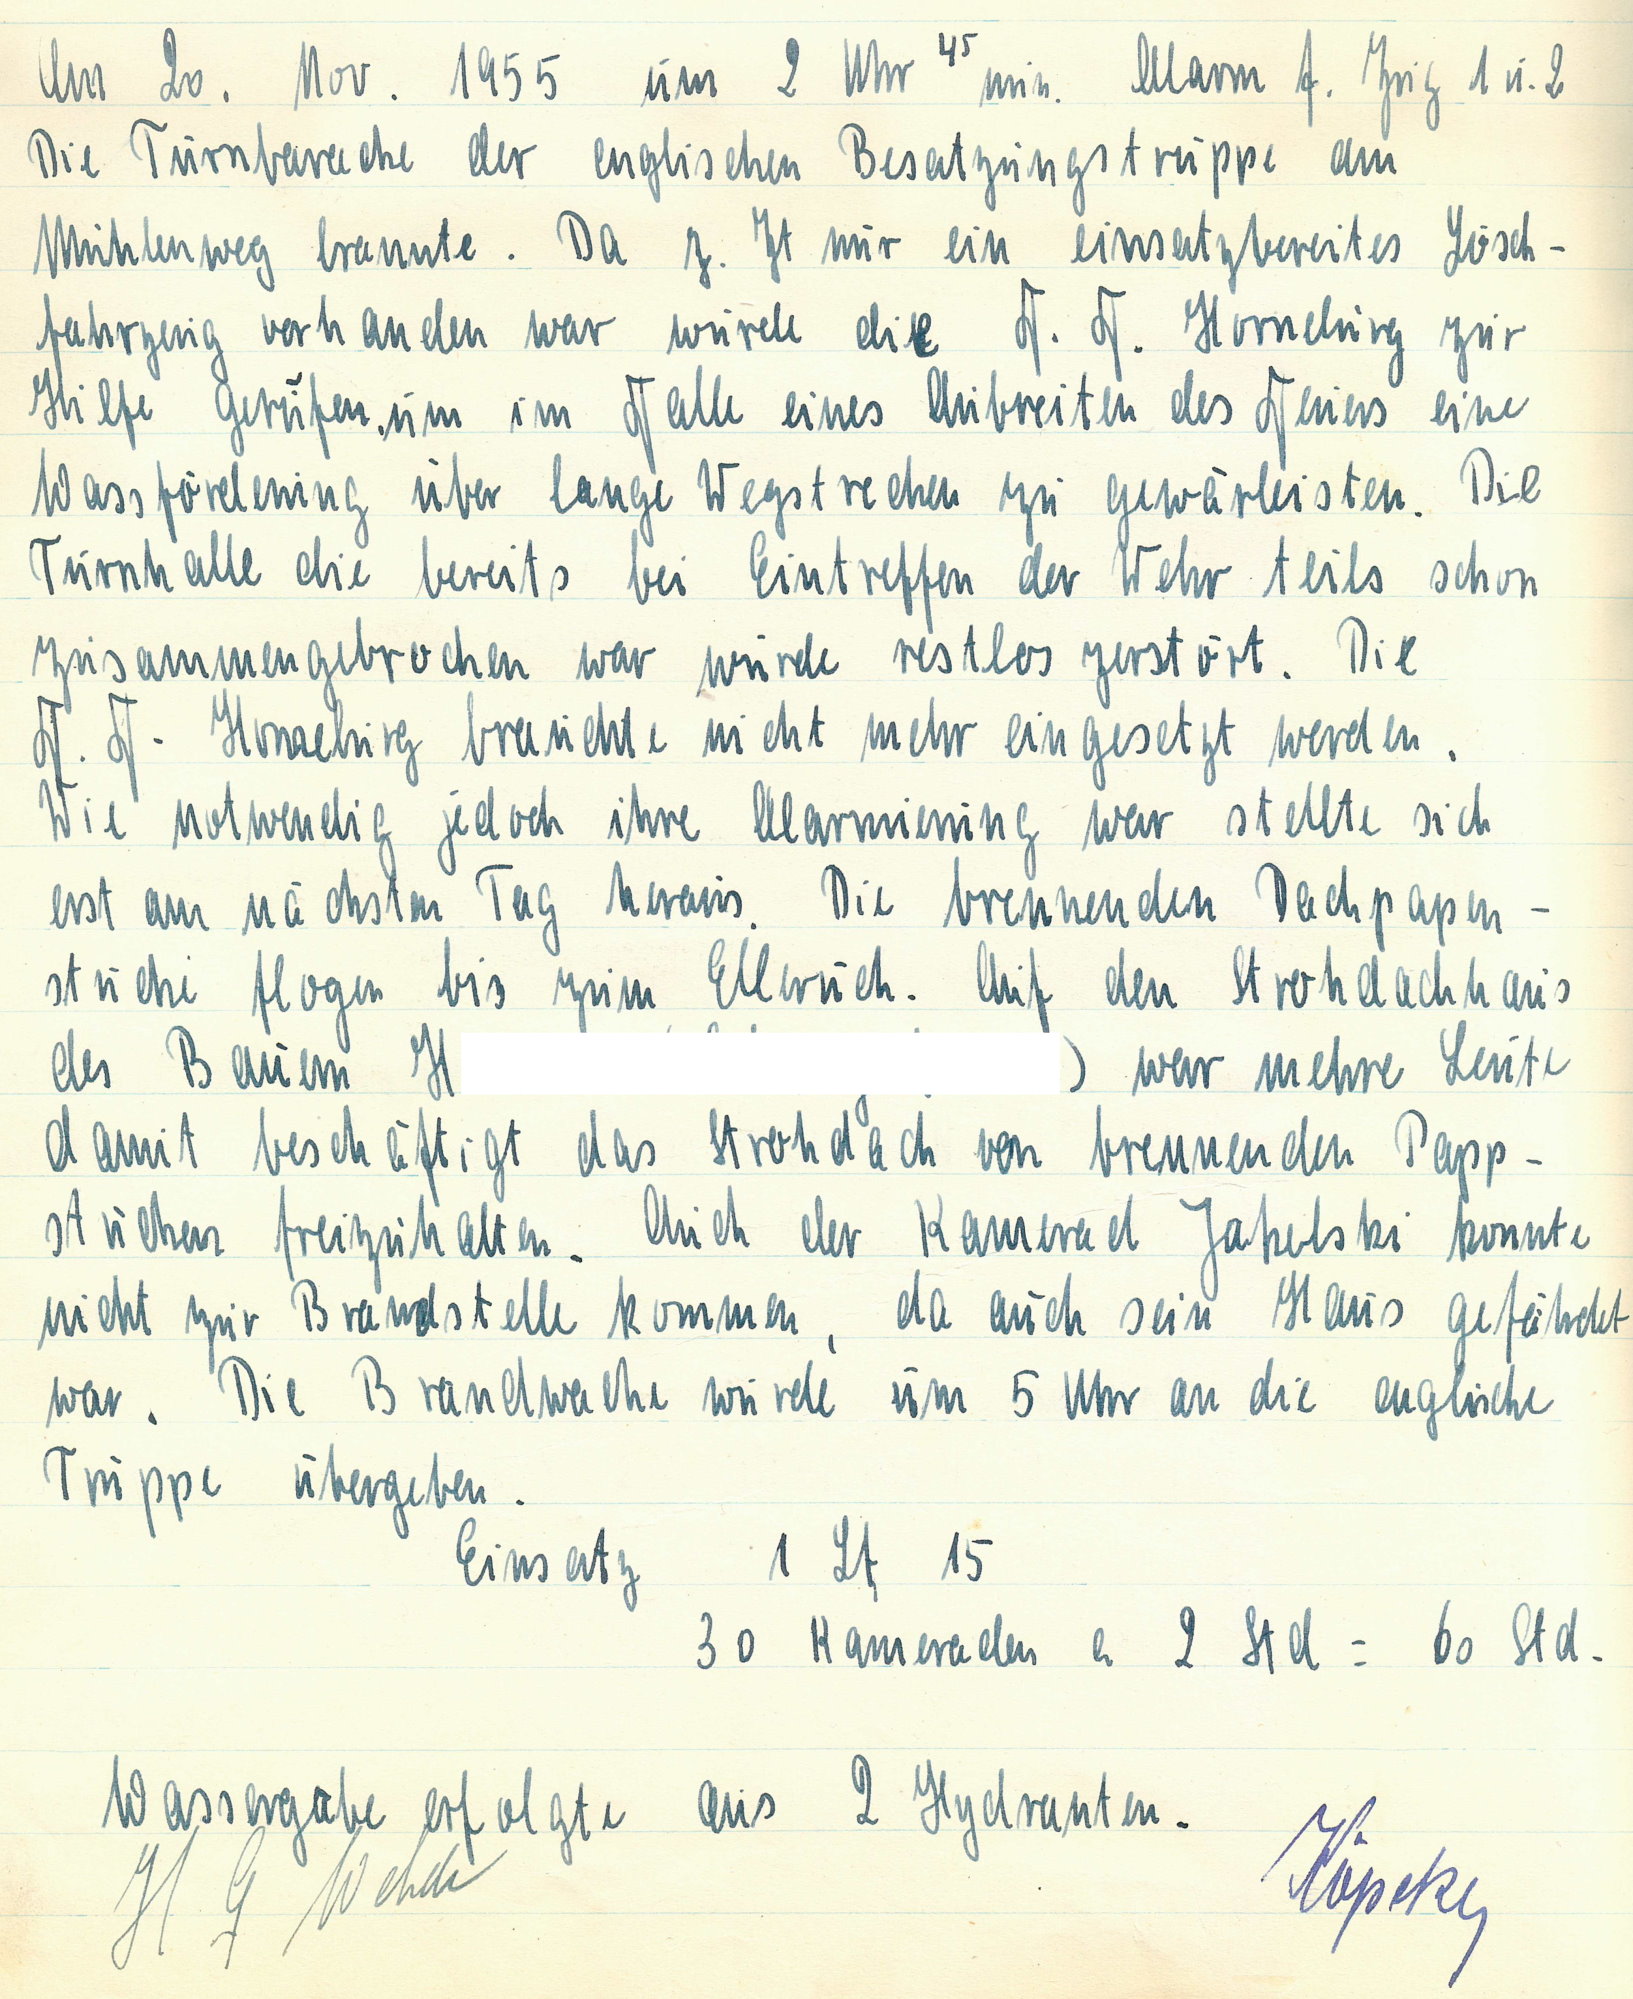 Am 20. Nov. 1955 um 2 Uhr 45 min. Alarm f. Zug 1 u. 2
Die Turnbarache der englischen Besatzungstruppe am
Mühlenweg brannte. Da z. Zt nur ein einsatzbereites Lösch-
fahrzeug vorhanden war wurde die F. F. Horneburg zur
Hilfe gerufen, um im Falle eines Aubreiten des Feuers eine
Wassförderung über lange Wegstrecken zu gewärleisten. Die
Turnhalle die bereits bei Eintreffen der Wehr teils schon
zusammengebrochen war wurde restlos zerstört. Die
F. F. Horneburg brauchte nicht mehr eingesetzt werden.
Wie notwendig jedoch ihre Alarmierung war stellte sich
erst am nächsten Tag heraus. Die brennenden Dachpapen-
stücke flogen bis zum Elleruch. Auf den Strohdachhaus
des Bauern H ) war mehre Leute
damit beschäftigt das Strohdach von brennenden Papp-
stücken freizuhalten. Auch der Kamerad Jakelski konnte
nicht zur Brandstelle kommen, da auch sein Haus gefährdet
war. Die Brandwache wurde um 5 Uhr an die englische
Truppe übergeben.
Einsatz 1 Lf 15
30 Kameraden a 2 Std = 60 Std.
Wassergabe erfolgte aus 2 Hydranten.
H G Wehde Köpcke